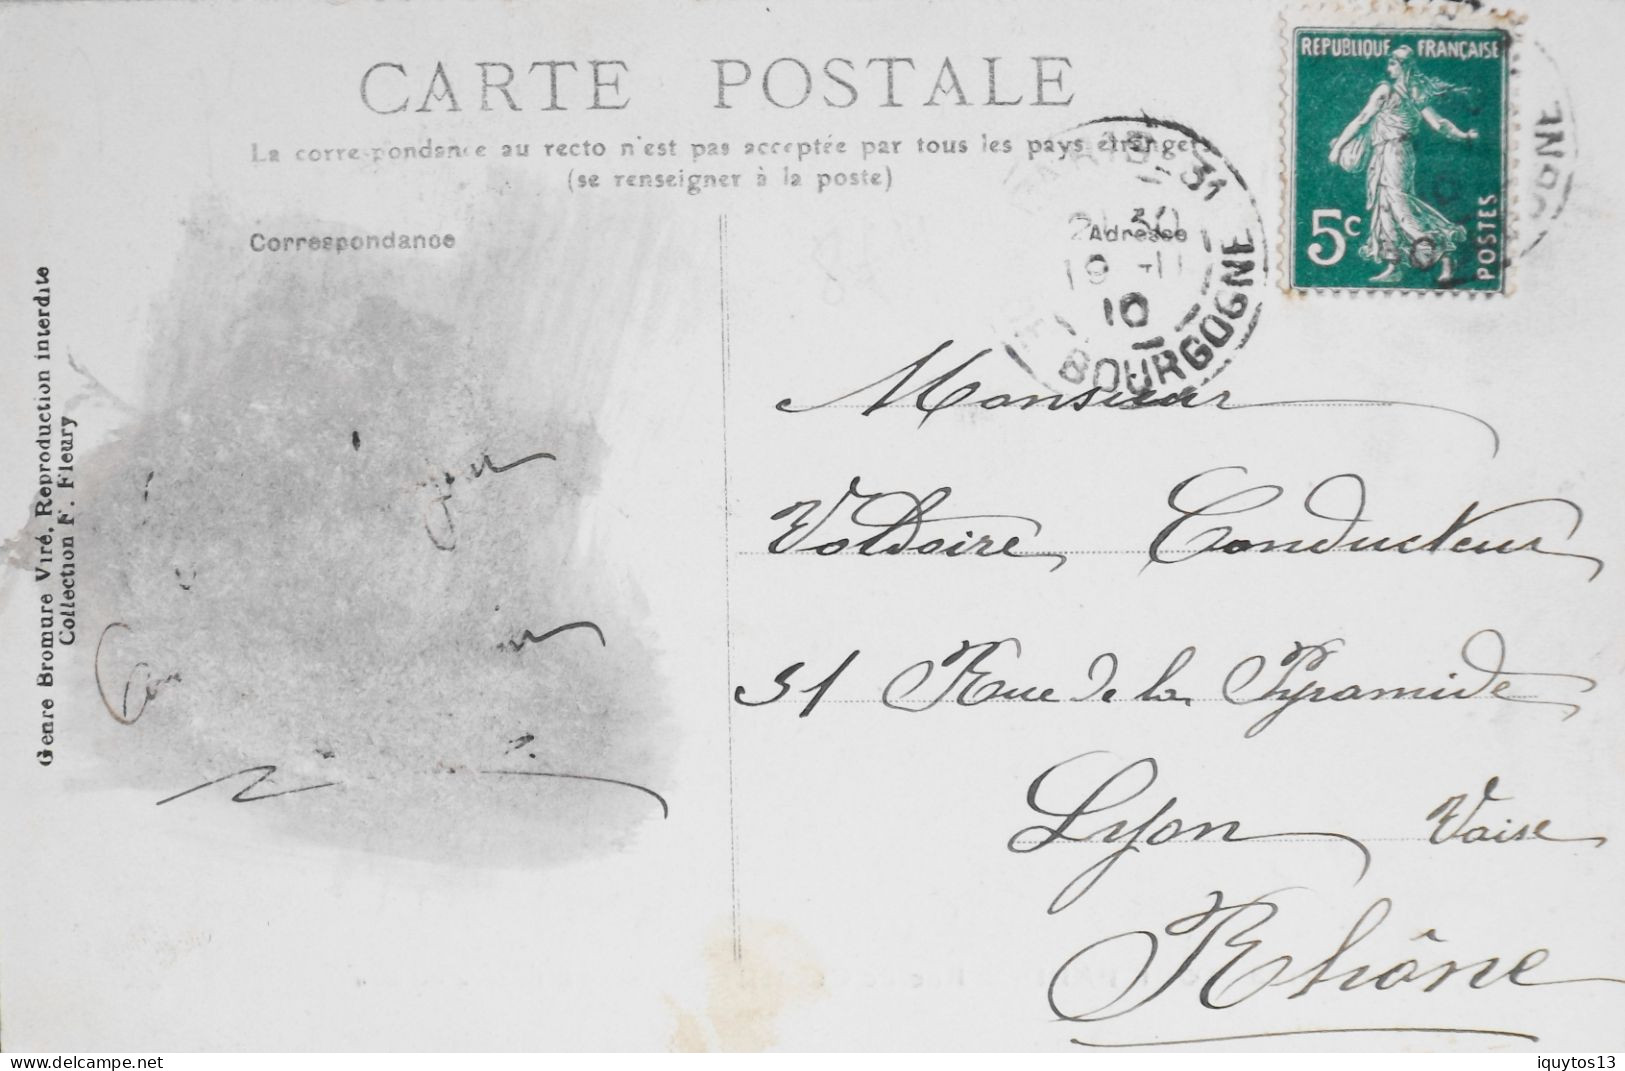 CARTE POSTALE
La correspondance au recto n'est pas acceptée par tous les pays étrangers
(se renseigner à la poste)
Correspondance
Adresse
REPUBLIQUE FRANÇAISE
5c
POSTES
31
10
BOURGOGNE
OGNE
Genre Bromure Viré, Reproduction interdite
Collection F. Fleury
Monsieur
Voldoire Conducteur
31 Rue de la Pyramide
Lyon Vaise
Rhône
www.delcampe.net
iquytos13